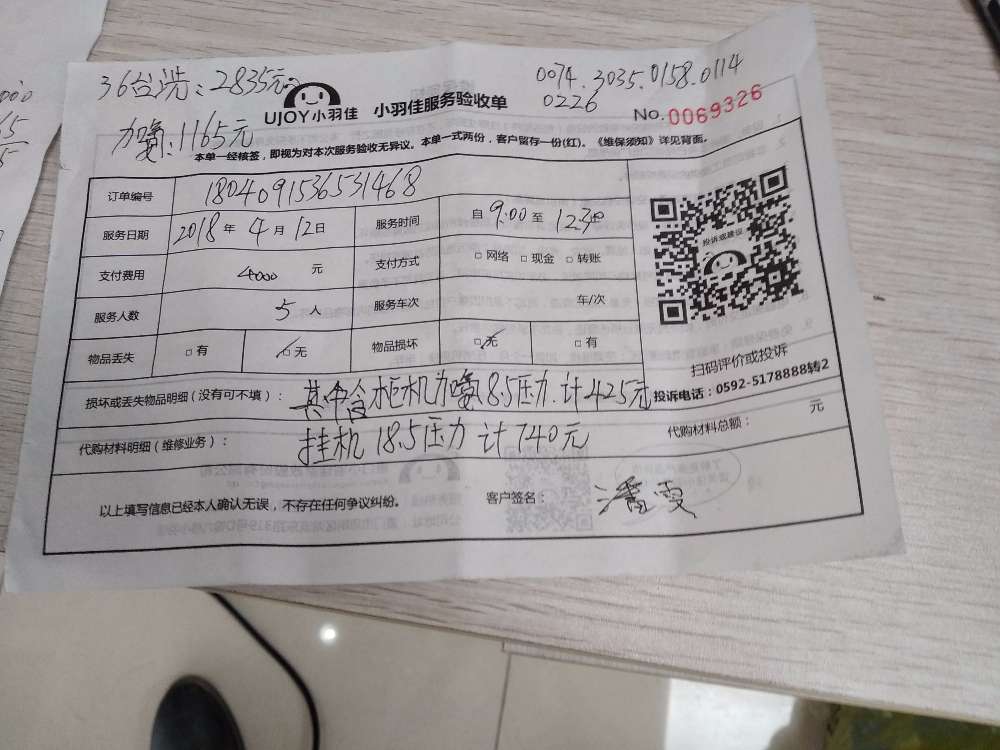 36台洗：2835元
0074.3035.0158.0114
0226
UJOY小羽佳 小羽佳服务验收单
No.0069326
加氨：1165元
本单一经核签，即视为对本次服务验收无异议。本单一式两份，客户留存一份(红)。《维保须知》详见背面。
订单编号 1804091536531468
服务日期 2018年4月12日 服务时间 自9:00至12:30
支付费用 4000 元 支付方式 □网络 □现金 □转账
服务人数 5人 服务车次 车/次
物品丢失 □有 ☑无 物品损坏 ☑无 □有
投诉或建议
扫码评价或投诉
投诉电话：0592-5178888转2
损坏或丢失物品明细(没有可不填)： 其中含柜机加氨8.5压力.计425元
代购材料明细(维修业务)： 挂机18.5压力 计740元
代购材料总额： 元
以上填写信息已经本人确认无误，不存在任何争议纠纷。 客户签名： 潘雯